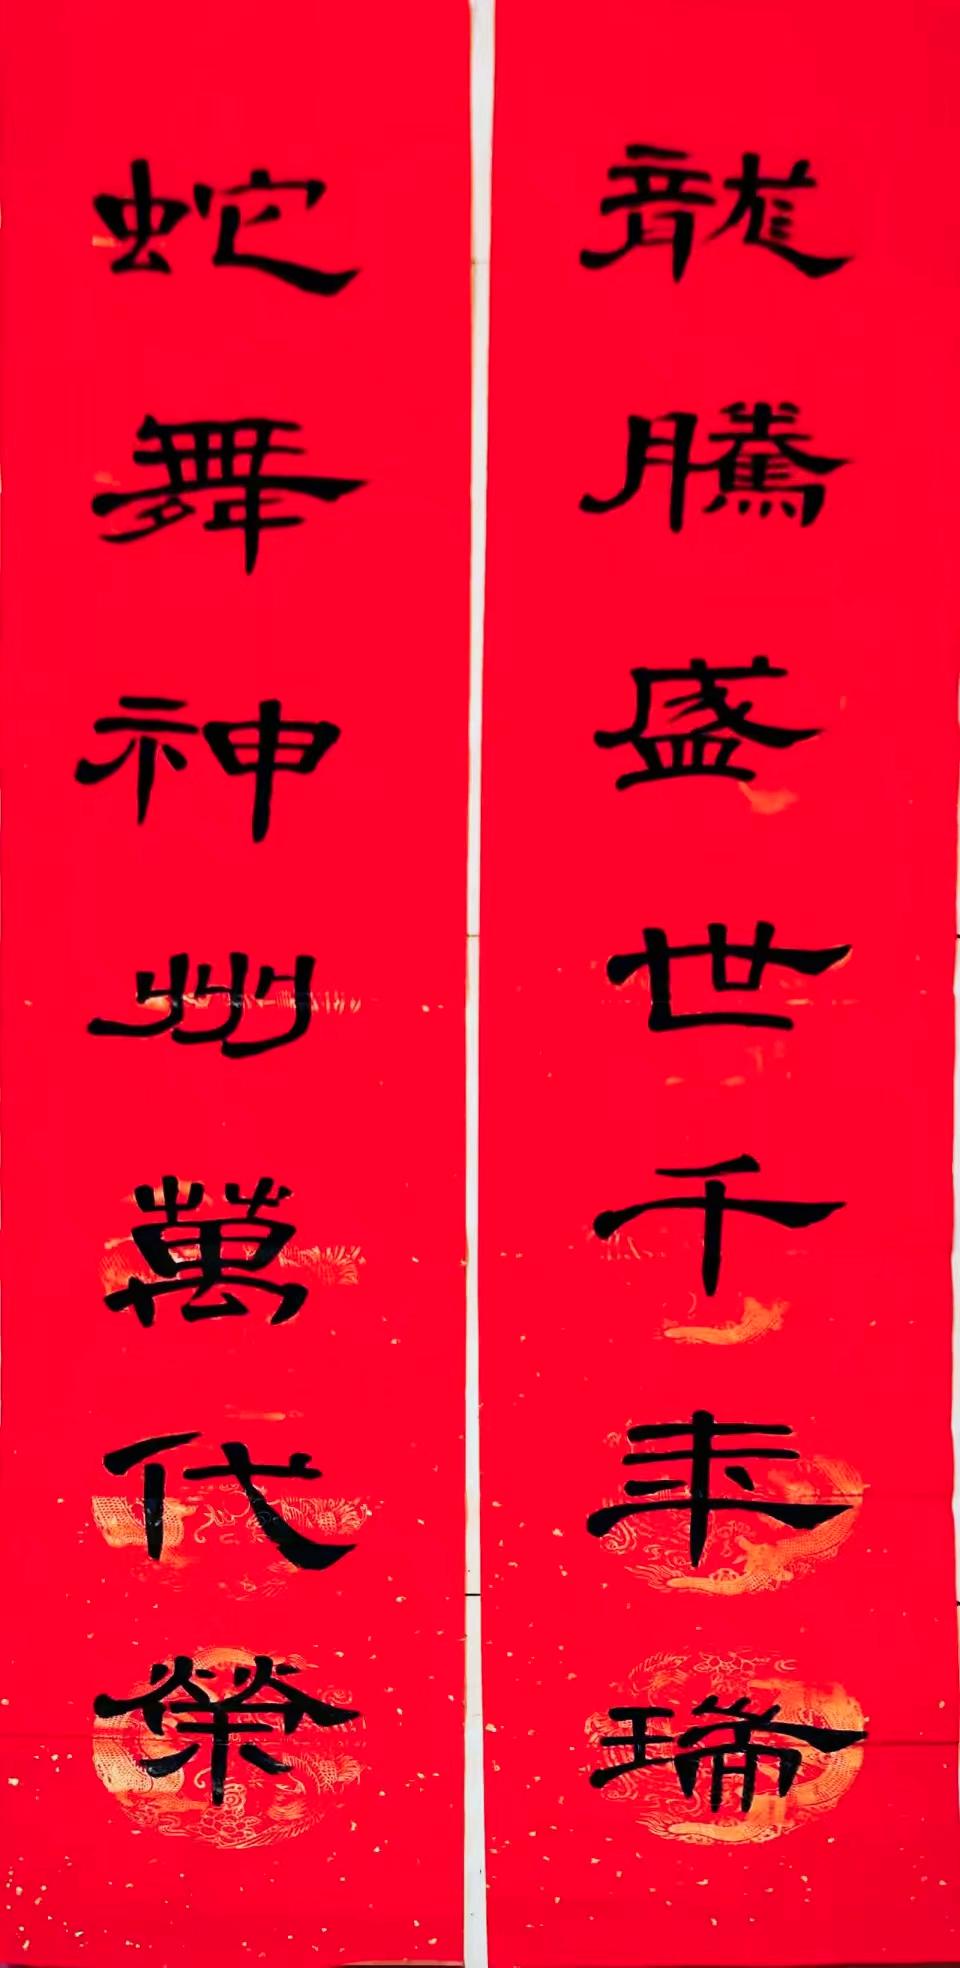 龍騰盛世千年瑞
蛇舞神州萬代榮